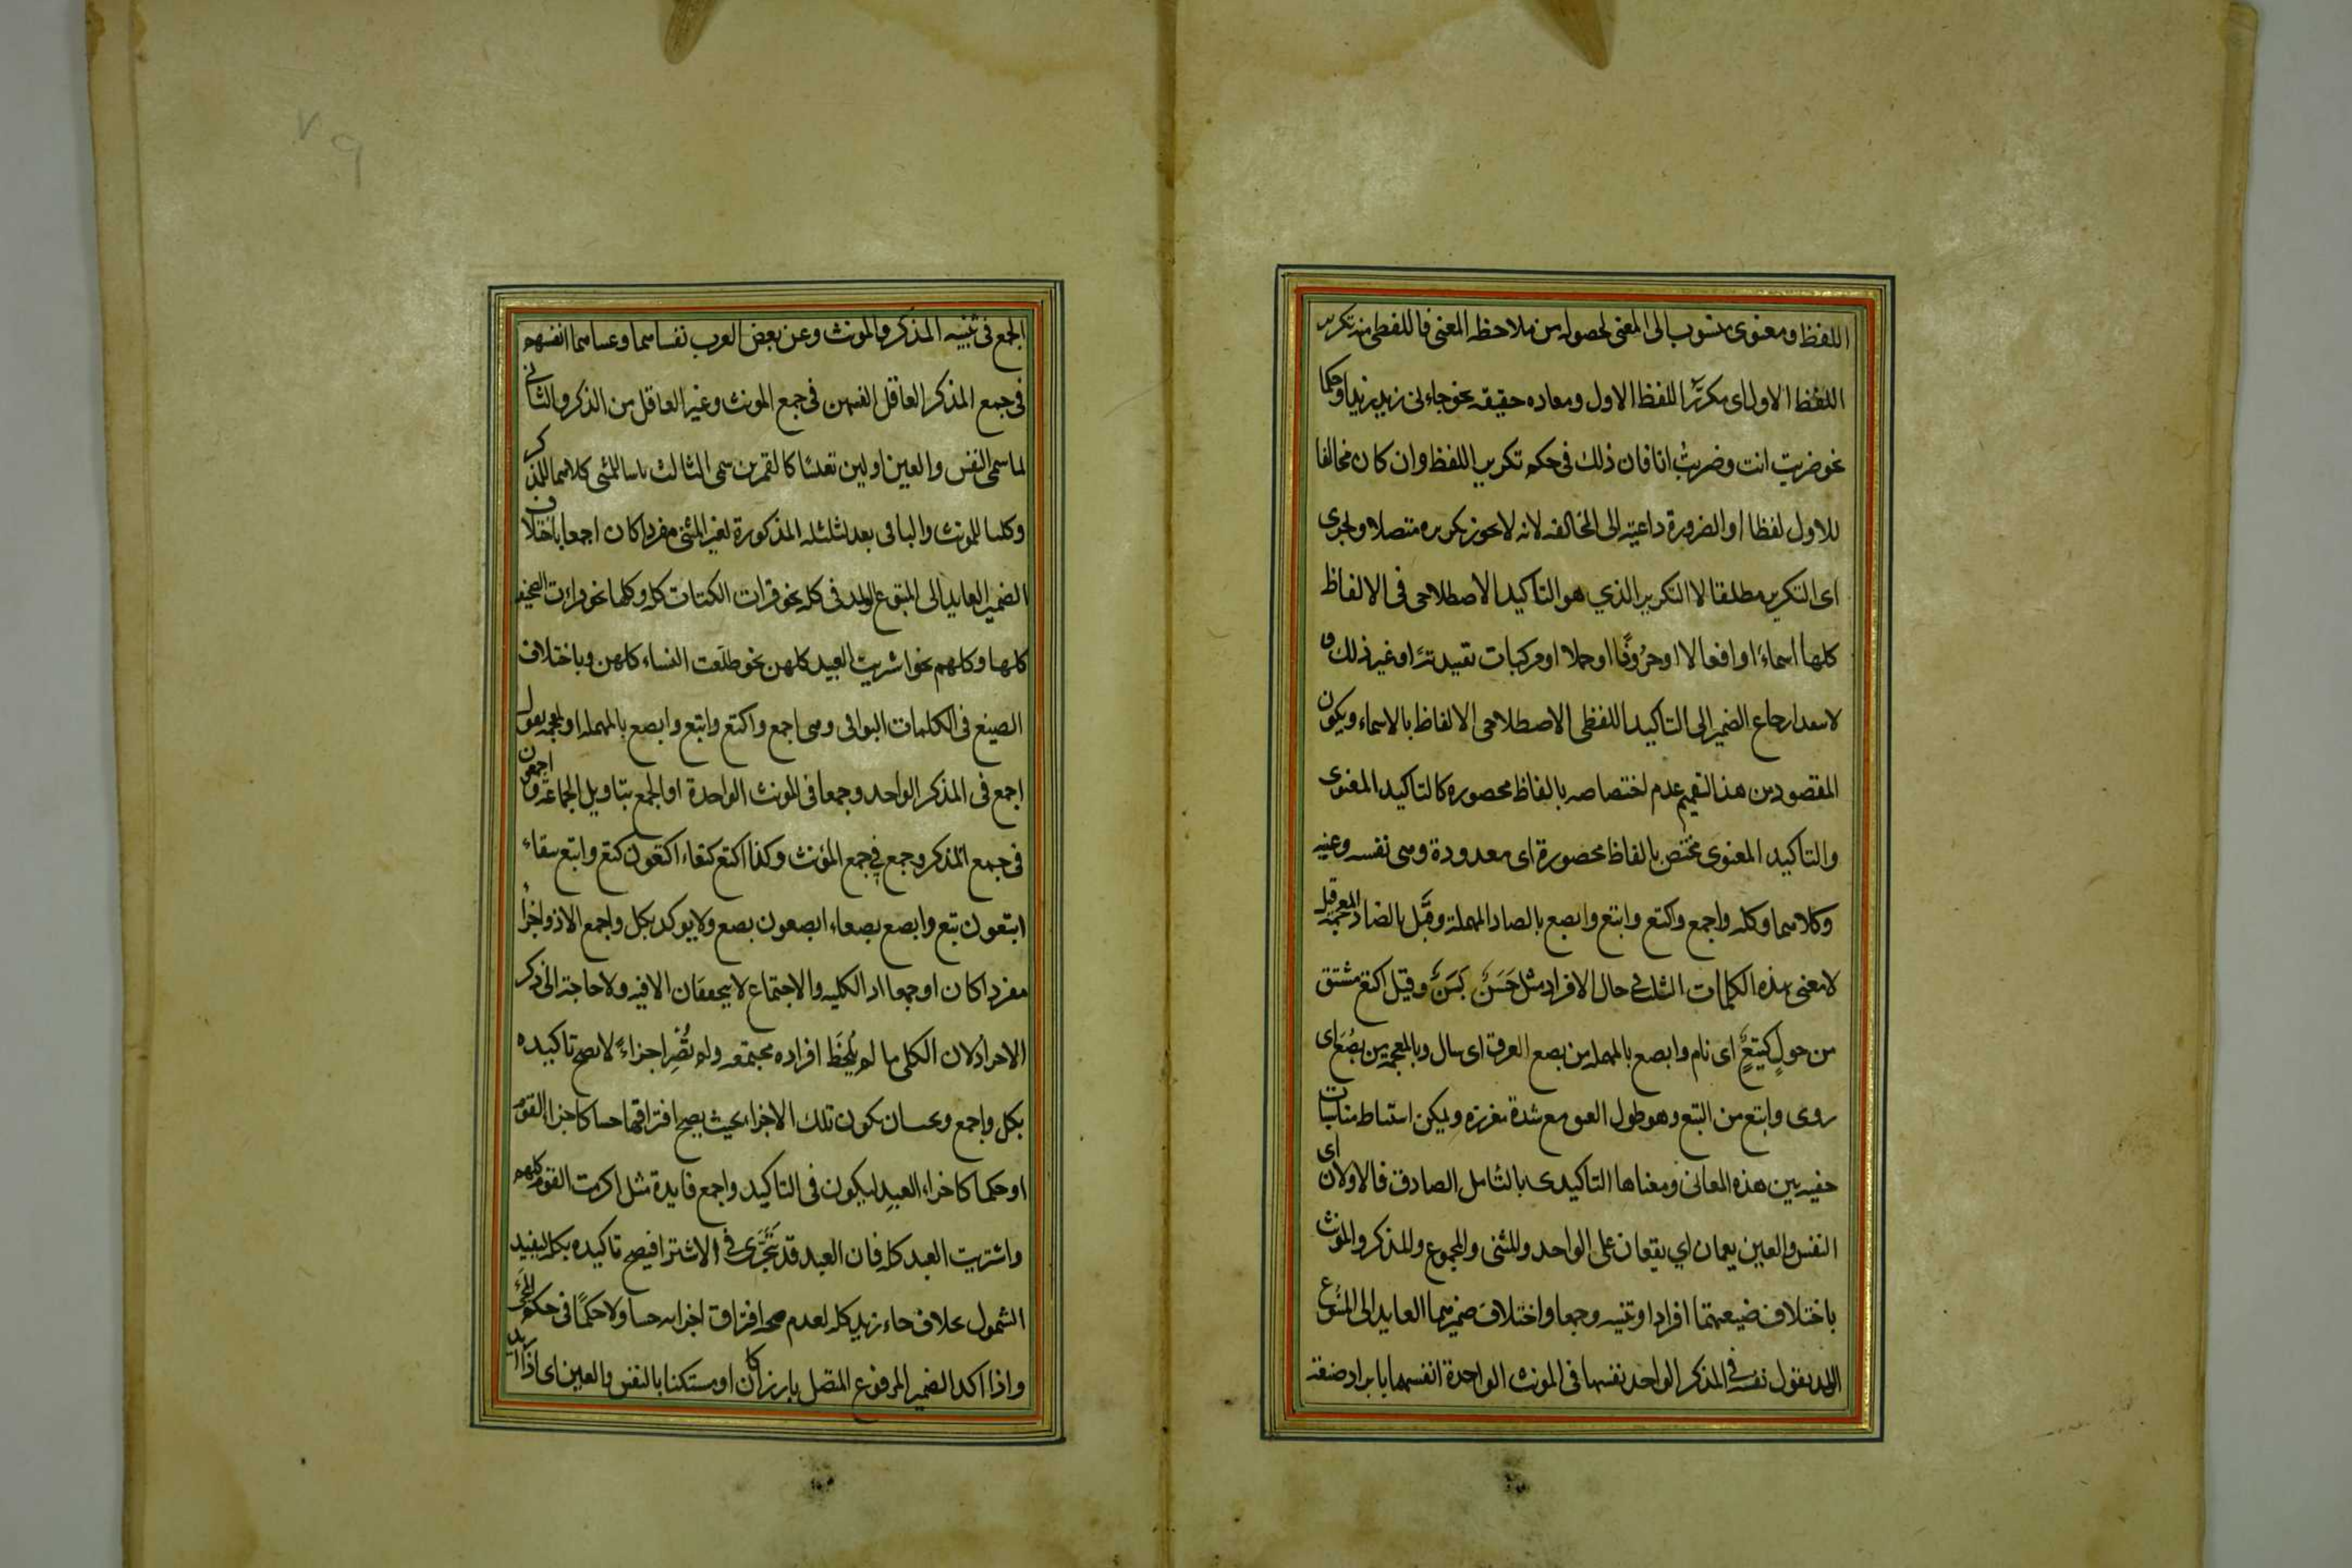 اللفظ ومعنوى منسوب الى المعنى لحصوله من ملاحظه المعنى فاللفطى منه تكرير
اللفظ الاول اى مكرّر اللفظ الاول ومعاده حقيقه نحو جاءنى زيد زيد او حكما
نحو ضربت انت وضربتُ انا فان ذلك فى حكم تكرير اللفظ وان كان مخالفا
للاول لفظا او الضرورة داعية الى المخالفه لانه لا يحوز تكريره متصلا ويجرى
اى التكرير مطلقا لا التكرير الذي هو التاكيد الاصطلاحى فى الالفاظ
كلها اسماءً او افعالا او حرُوفًا او جملا او مركبات تقييديّة او غير ذلك و
لا يبعد ارجاع الضمير الى التاكيد اللفظى الاصطلاحى الالفاظ بالاسماء ويكون
المقصود من هذا التعميم عدم اختصاصه بالفاظ محصوره كالتاكيد المعنوى
والتاكيد المعنوى مختص بالفاظ محصورة اى معدودة وهى نفسه وعينه
وكلاهما وكله واجمع واكتع وابتع وابصع بالصاد المهملة وقيل بالضاد المعجمة وقيل
لا معنى لهذه الكلمات الثلث في حال الافراد مثل حَسَنٌ بَسَنٌ وقيل اكتع مشتق
من حولٍ كتيعٍ اى تام وابصع بالمهمله من بصع العرق اى سال وبالمعجمة من بضع اى
روى وابتع من البتع وهو طول العنق مع شدة مغرزه ويمكن استنباط مناسبات
خفيه بين هذه المعانى ومعناها التاكيدى بالتامل الصادق فالاولان اى
النفس والعين يعمان اي يقعان على الواحد والمثنى والمجموع والمذكر والمونث
باختلاف صيغتهما افرادا وتثنيه وجمعا واختلاف ضميرهما العايد الى المتبوع
المؤكد يقول نفسه في المذكر الواحد نفسها فى المونث الواحدة انفسهما بايراد صيغة
الجمع فى تثنيه المذكر والمونث وعن بعض العرب نفساهما وعيناهما انفسهم
فى جمع المذكر العاقل انفسهن فى جمع المونث وغير العاقل من المذكر والثانى
لما سمى النفس والعين اولين تغليبًا كالقمرين سمى الثالث ثانيا للمثنى كلاهما للمذكر
وكلتاهما للمونث والباقى بعد الثلثه المذكورة لغير المثنى مفردا كان او جمعا باختلاف
الضمير العايد الى المتبوع المؤكد فى كله نحو قرات الكتاب كله وكلها نحو قرات الصحيفه
كلها وكلهم نحو اشتريت العبيد كلهن نحو طلقت النساء كلهن وباختلاف
الصيغ فى الكلمات البواقى وهى اجمع واكتع وابتع وابصع بالمهمله او المعجمه يقول
اجمع فى المذكر الواحد وجمعا فى المونث الواحدة او الجمع بتاويل الجماعة واجمعون
فى جمع المذكر وجمع في جمع المؤنث وكذا اكتع كتعاء اكتعون كتع وابتع بتعاء
ابتعون بتع وابصع بصعاء ابصعون بصع ولا يوكد بكل واجمع الا ذو اجزاء
مفردا كان او جمعا اذ الكليه والاجتماع لا يتحققان الا فيه ولا حاجة الى ذكر
الافراد لان الكلى ما لم يُلحَظ افراده مجتمعه ولم تُصِر اجزاءً لا يصح تاكيده
بكل واجمع ويجب ان يكون تلك الاجزاء بحيث يصح افتراقها حسا كاجزاء القوم
او حكما كاجزاء العبدِ ليكون فى التاكيد واجمع فايدة مثل اكرمت القوم كلهم
واشتريت العبد كله فان العبد قد يَتَجَزَّى في الاشتراء فيصح تاكيده بكل ليفيد
الشمول بخلاف جاء زيد كله لعدم صحه افتراق اجزايه حسا ولا حكمًا فى حكم المجئ
واذا اكد الضمير المرفوع المتصل بارزا كان او مستكنا بالنفس والعين اى اذا اريد